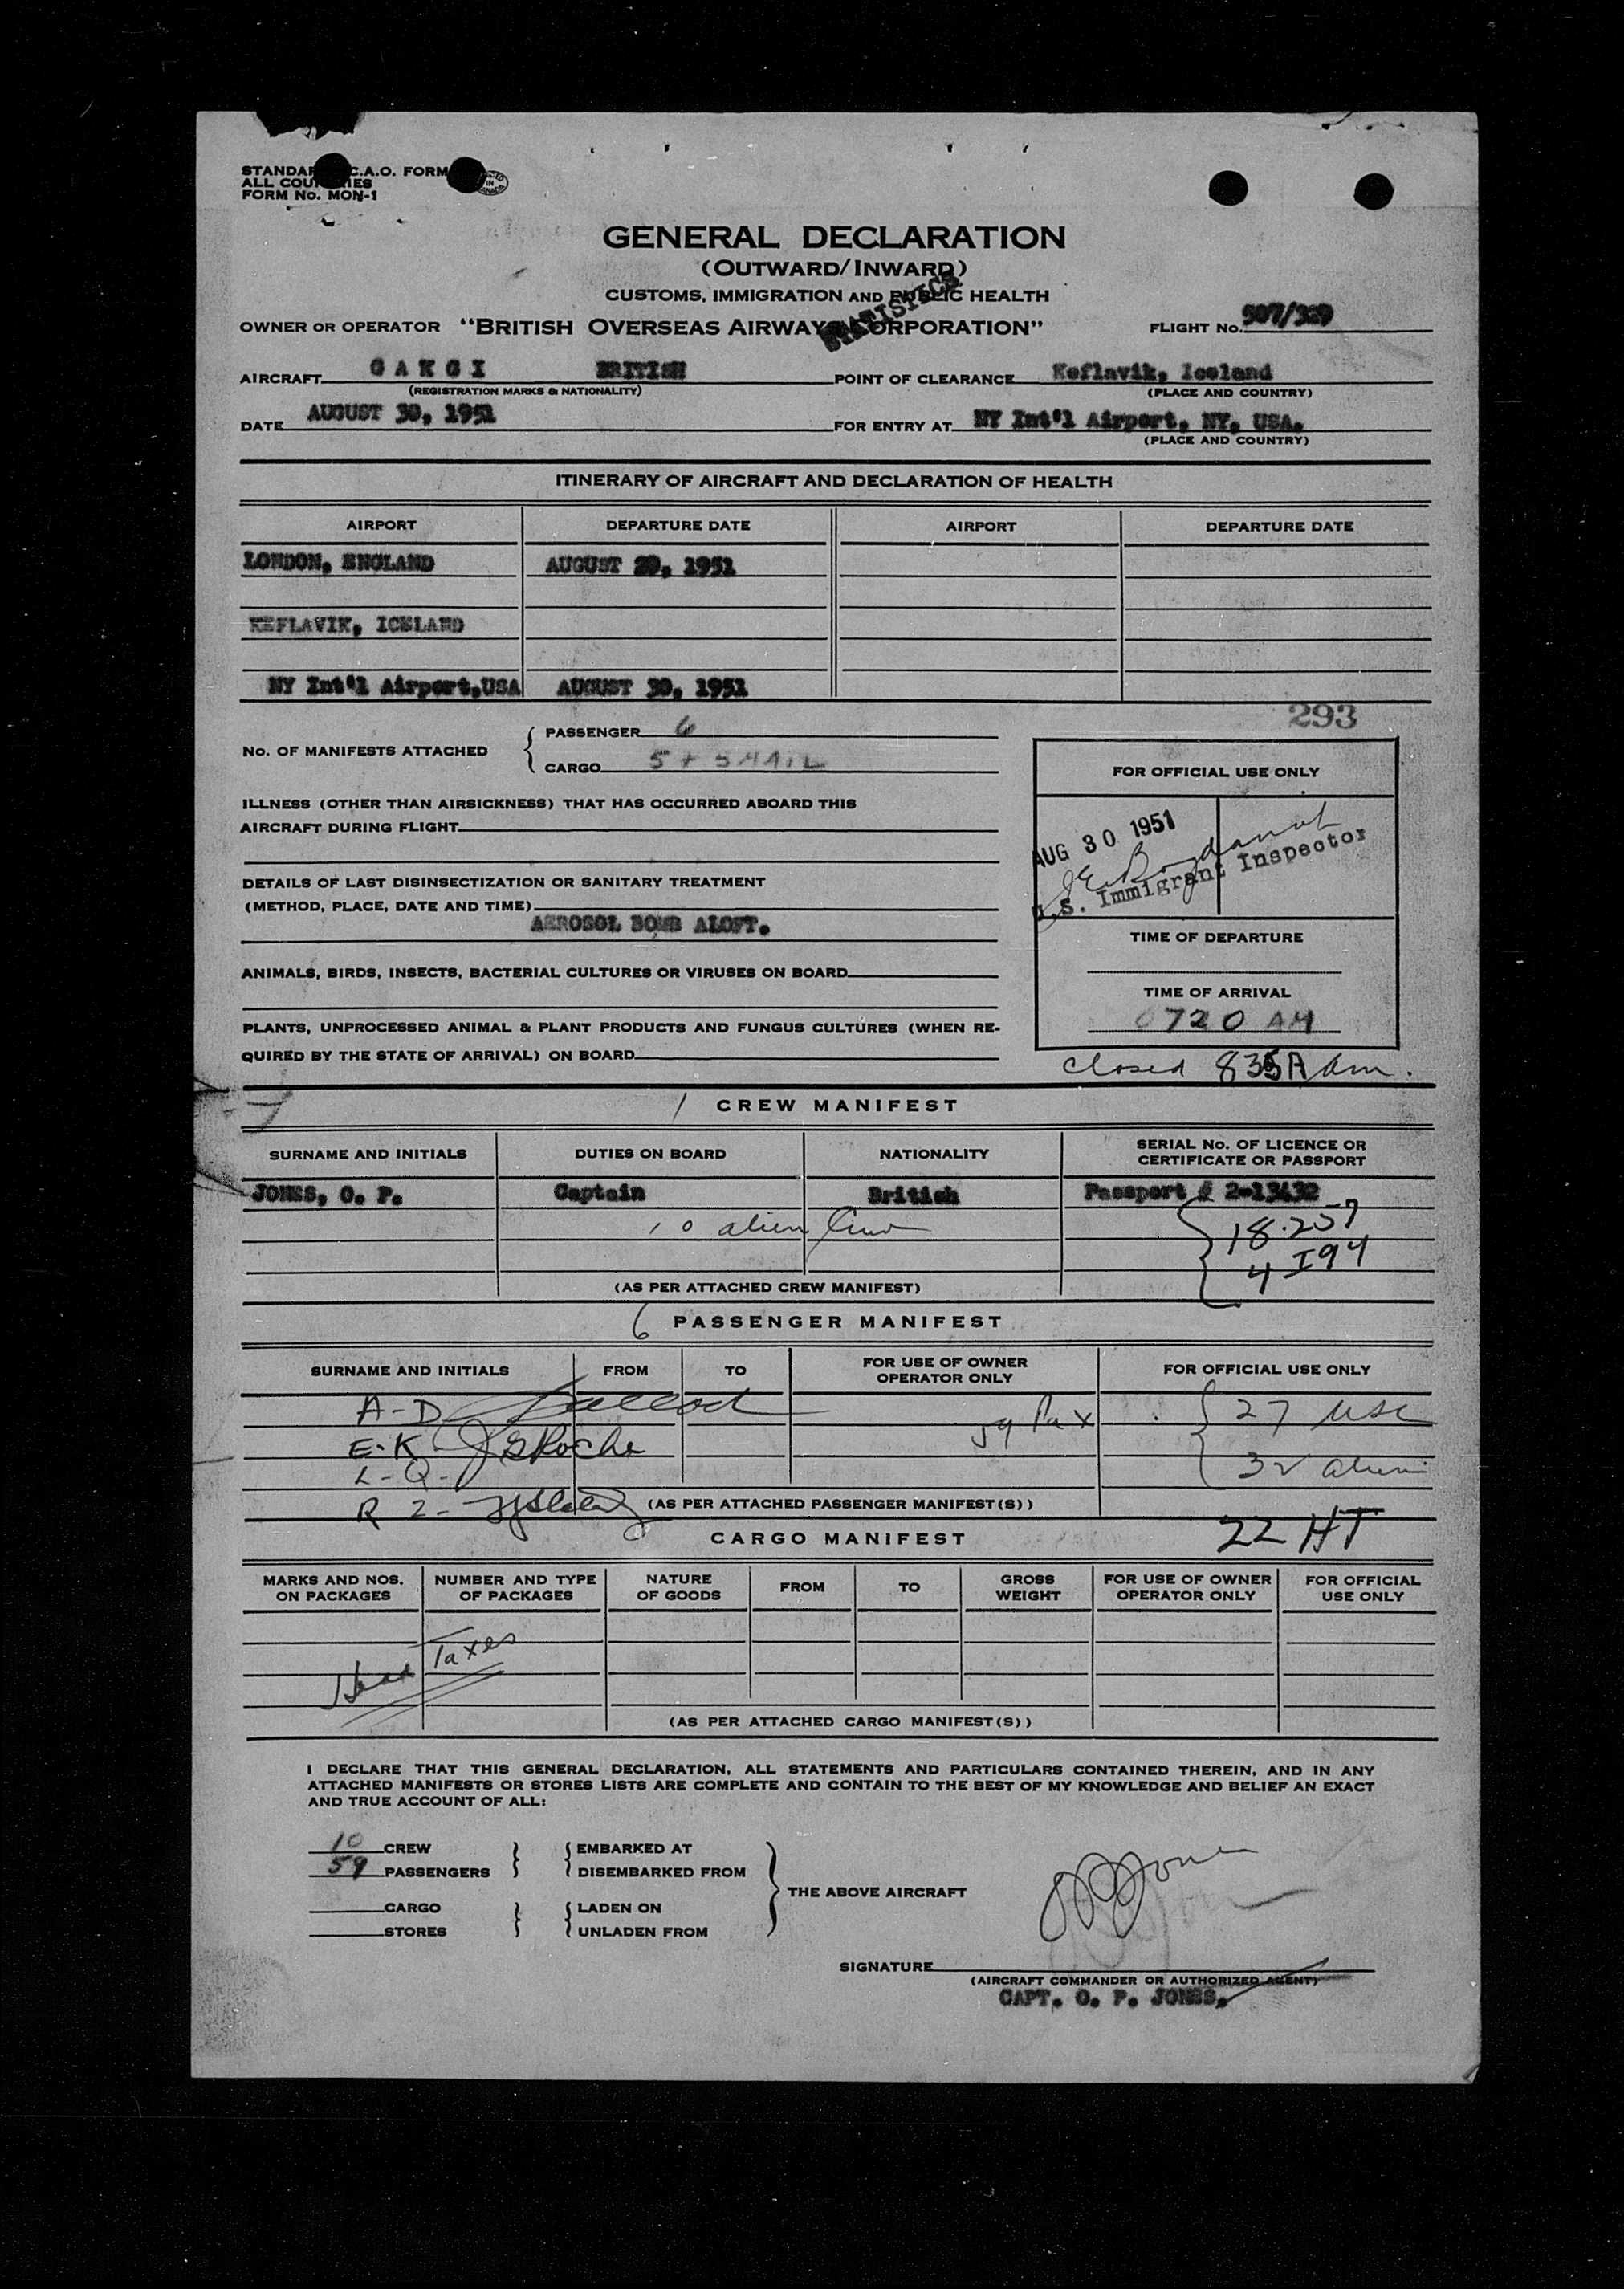 STANDARD I.C.A.O. FORM
ALL COUNTRIES
FORM No. MON-1
GENERAL DECLARATION
(OUTWARD/INWARD)
CUSTOMS, IMMIGRATION AND PUBLIC HEALTH
STATISTICS
OWNER OR OPERATOR "BRITISH OVERSEAS AIRWAYS CORPORATION" FLIGHT No. 507/329
AIRCRAFT G A K G I BRITISH POINT OF CLEARANCE Keflavik, Iceland
(REGISTRATION MARKS & NATIONALITY) (PLACE AND COUNTRY)
DATE AUGUST 30, 1951 FOR ENTRY AT NY Int'l Airport, NY, USA.
(PLACE AND COUNTRY)
ITINERARY OF AIRCRAFT AND DECLARATION OF HEALTH
AIRPORT DEPARTURE DATE AIRPORT DEPARTURE DATE
LONDON, ENGLAND AUGUST 29, 1951
KEFLAVIK, ICELAND
NY Int'l Airport, USA AUGUST 30, 1951
293
No. OF MANIFESTS ATTACHED
PASSENGER 6
CARGO 5 + 5 MAIL
ILLNESS (OTHER THAN AIRSICKNESS) THAT HAS OCCURRED ABOARD THIS
AIRCRAFT DURING FLIGHT
DETAILS OF LAST DISINSECTIZATION OR SANITARY TREATMENT
(METHOD, PLACE, DATE AND TIME)
AEROSOL BOMB ALOFT.
ANIMALS, BIRDS, INSECTS, BACTERIAL CULTURES OR VIRUSES ON BOARD
PLANTS, UNPROCESSED ANIMAL & PLANT PRODUCTS AND FUNGUS CULTURES (WHEN RE-
QUIRED BY THE STATE OF ARRIVAL) ON BOARD
FOR OFFICIAL USE ONLY
AUG 30 1951
U.S. Immigrant Inspector
TIME OF DEPARTURE
TIME OF ARRIVAL
0720 AM
closed 835A am.
1 CREW MANIFEST
SURNAME AND INITIALS DUTIES ON BOARD NATIONALITY SERIAL No. OF LICENCE OR
CERTIFICATE OR PASSPORT
JONES, O. P. Captain British Passport # 2-13432
10 alien Crew 18·257
4 I94
(AS PER ATTACHED CREW MANIFEST)
6 PASSENGER MANIFEST
SURNAME AND INITIALS FROM TO FOR USE OF OWNER
OPERATOR ONLY FOR OFFICIAL USE ONLY
A-D 59 Pax 27 USC
E-K JGRoche
L-Q- 32 alien
R Z- (AS PER ATTACHED PASSENGER MANIFEST(S))
22 HT
CARGO MANIFEST
MARKS AND NOS.
ON PACKAGES NUMBER AND TYPE
OF PACKAGES NATURE
OF GOODS FROM TO GROSS
WEIGHT FOR USE OF OWNER
OPERATOR ONLY FOR OFFICIAL
USE ONLY
Head Taxes
(AS PER ATTACHED CARGO MANIFEST(S))
I DECLARE THAT THIS GENERAL DECLARATION, ALL STATEMENTS AND PARTICULARS CONTAINED THEREIN, AND IN ANY
ATTACHED MANIFESTS OR STORES LISTS ARE COMPLETE AND CONTAIN TO THE BEST OF MY KNOWLEDGE AND BELIEF AN EXACT
AND TRUE ACCOUNT OF ALL:
10 CREW EMBARKED AT
59 PASSENGERS DISEMBARKED FROM
THE ABOVE AIRCRAFT
CARGO LADEN ON
STORES UNLADEN FROM
OPJones
SIGNATURE
(AIRCRAFT COMMANDER OR AUTHORIZED AGENT)
CAPT. O. P. JONES.